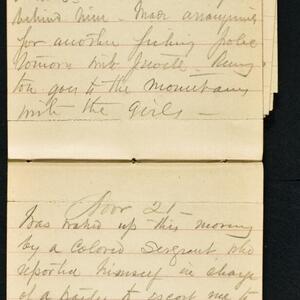 behind time - Made arrangements
for another fishing
with Jewell.
goes to the mountains
with the girls —
Nov 21
Was waked up this morning
by a colored Sergeant who
reported himself in charge
of a party to escort me to